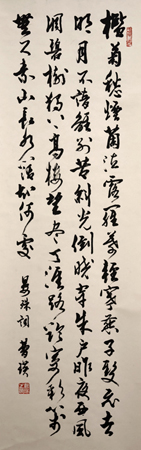 檻菊愁煙蘭泣露羅幕輕寒燕子雙飛去
明月不諳離別苦斜光到曉穿朱戶昨夜西風
凋碧樹獨上高樓望盡天涯路欲寄彩箋
兼尺素山長水闊知何處
晏殊詞